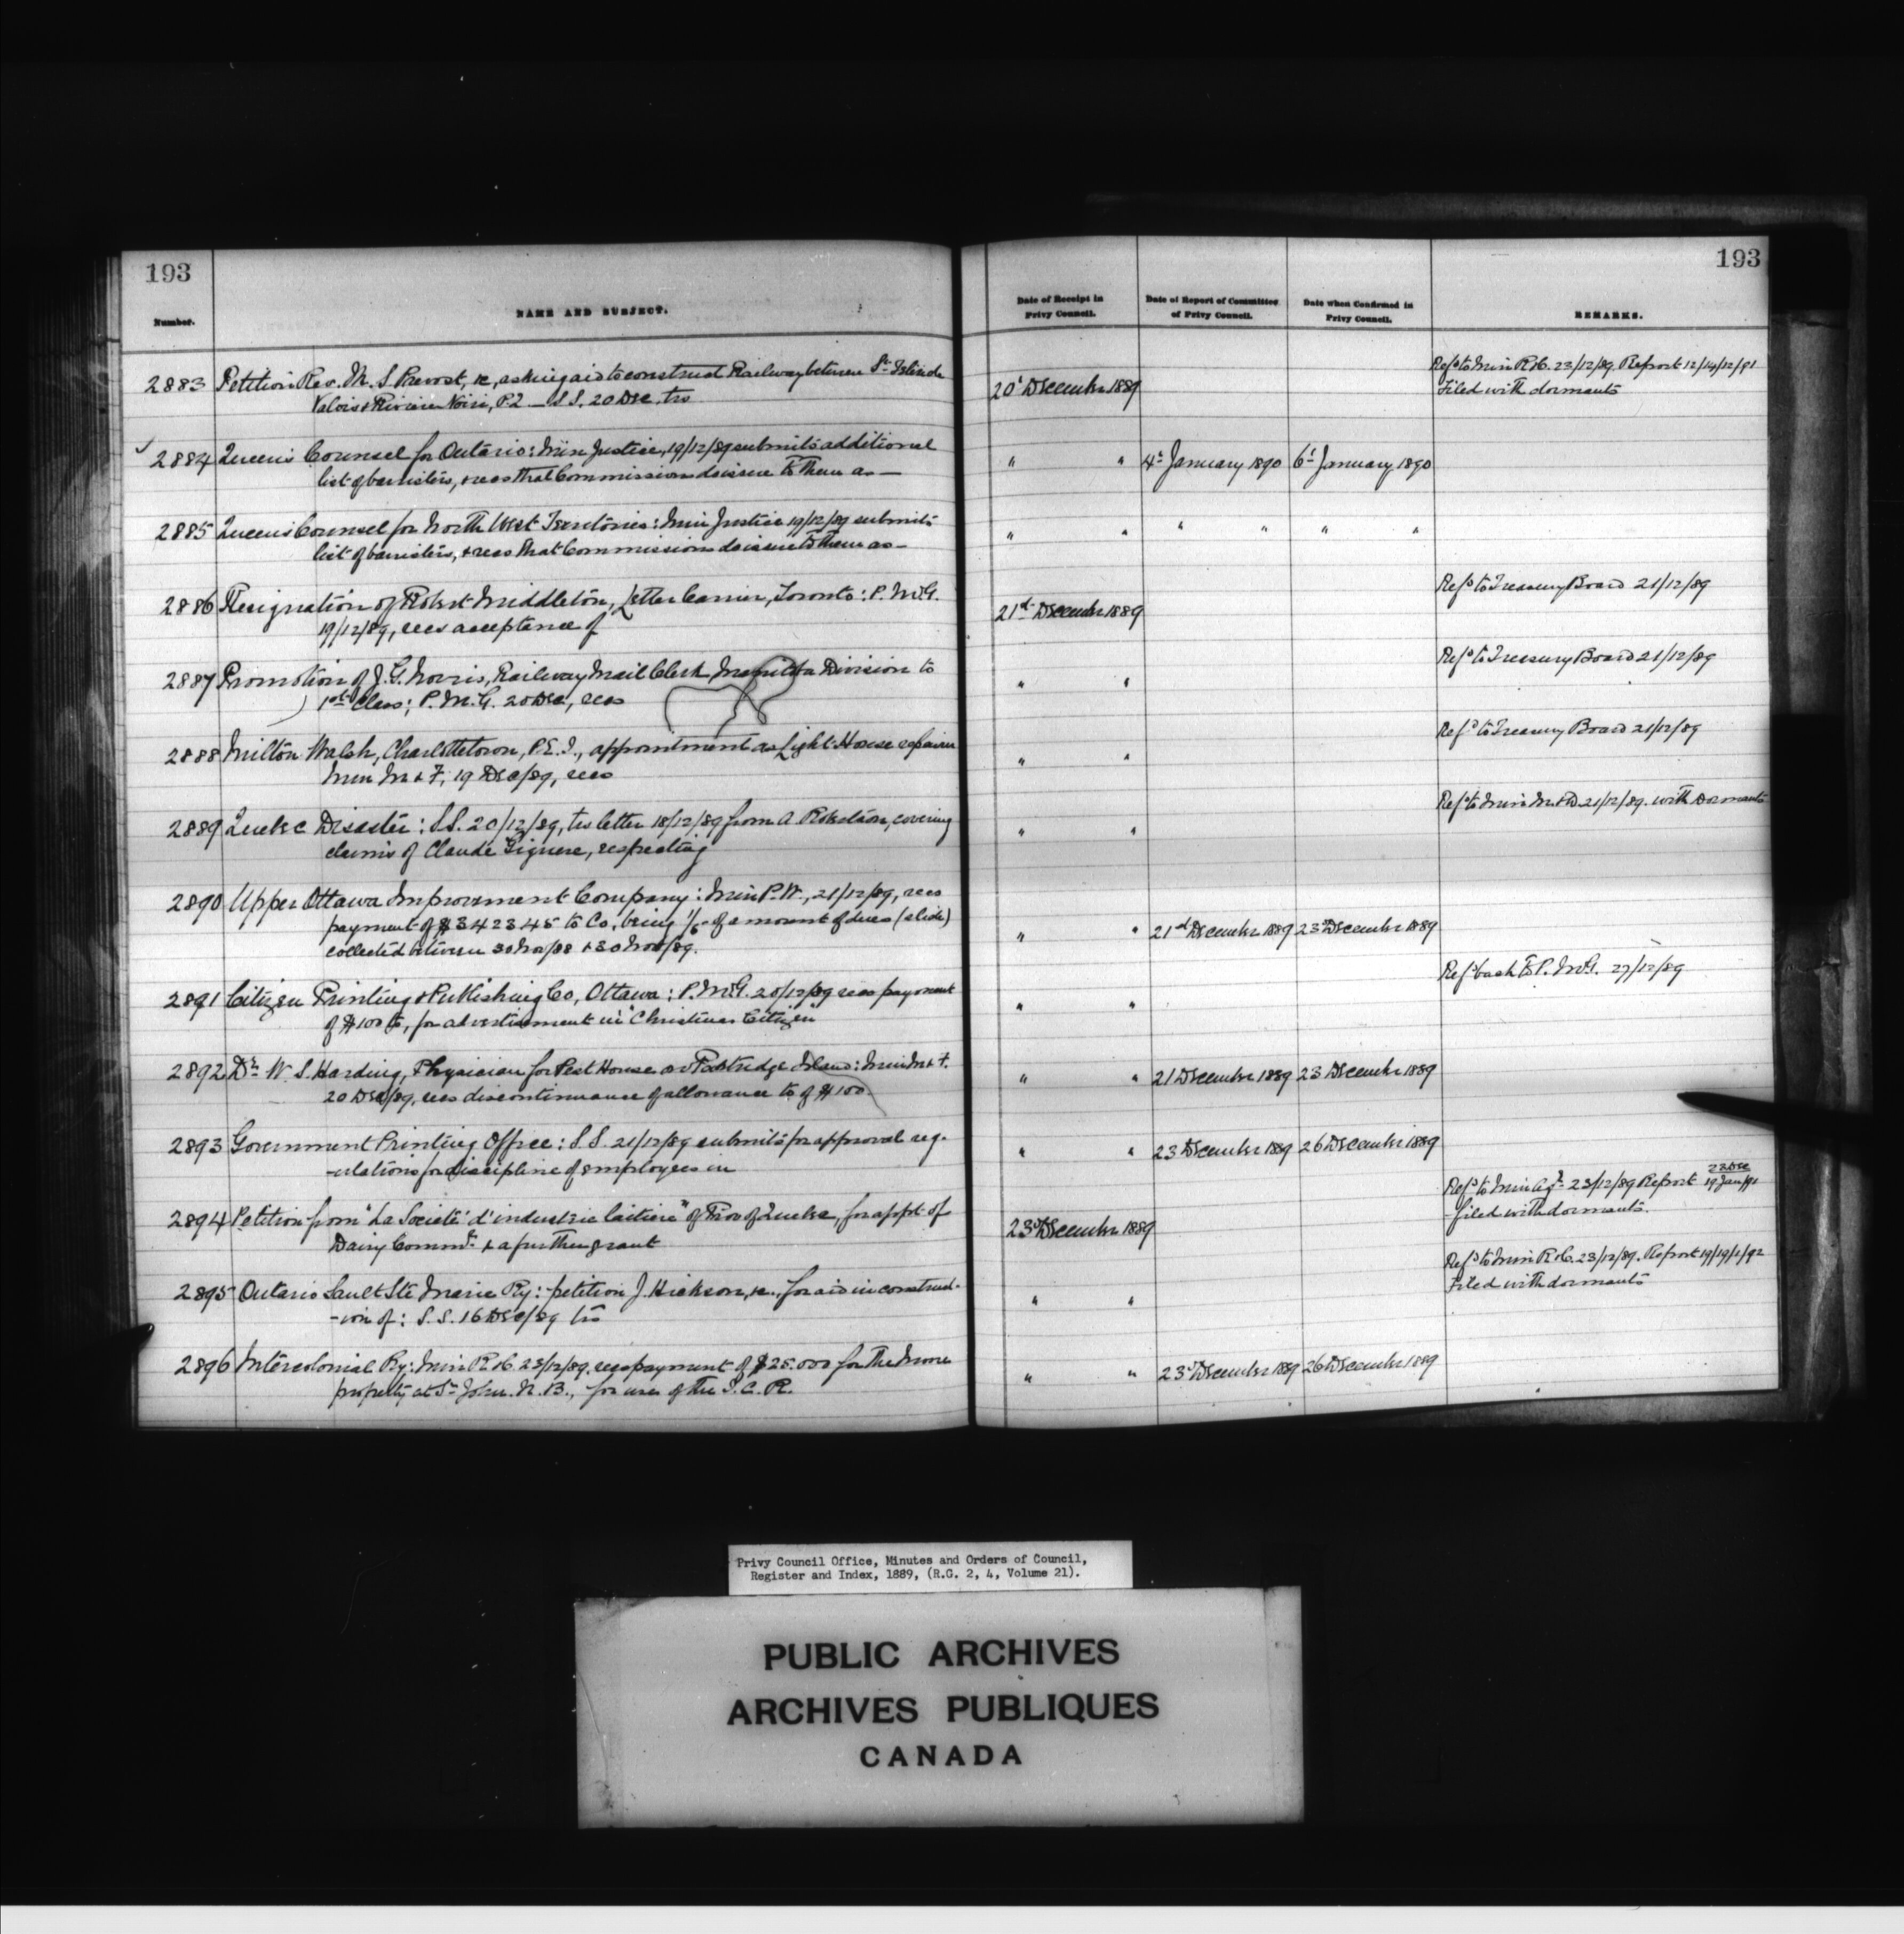 193
193
Number.
NAME AND SUBJECT.
Date of Receipt in
Privy Council.
Date of Report of Committee
of Privy Council.
Date when Confirmed in
Privy Council.
REMARKS.
2883 Petition Rev. M. S. Prevost, &c, asking aid to construct Railway between St.
Valois & Riviere Noire, P.Q. — S.S. 20 Dec. trs
20t December 1889
Refd to Min R&C. 23/12/89. Report 12/14/12/91
Filed with dormants
2884 Queen's Counsel for Ontario: Min Justice, 19/12/89 submits additional
list of barristers, & recs that Commissions do issue to them as —
" " 4t January 1890 6t January 1890
2885 Queen's Counsel for North West Territories: Min Justice 19/12/89 submits
list of barristers, & recs that Commissions do issue to them as —
" " " " " "
2886 Resignation of Robert Middleton, Letter Carrier, Toronto: P.M.G.
19/12/89, recs acceptance of
21st December 1889
Refd to Treasury Board 21/12/89
2887 Promotion of J. G. Norris, Railway Mail Clerk, Manitoba Division to
1st Class; P.M.G. 20 Dec, recs
" "
Refd to Treasury Board 21/12/89
2888 Milton Walsh, Charlottetown, P.E.I., appointment as Light-House repairer
Min M & F, 19 Dec/89, recs
" "
Refd to Treasury Board 21/12/89
2889 Quebec Disaster: S.S. 20/12/89, trs letter 18/12/89 from A. Robertson, covering
claims of Claude Giguere, respecting
" "
Refd to Min M & D. 21/12/89. with Dormants
2890 Upper Ottawa Improvement Company: Min P.W., 21/12/89, recs
payment of $3423 45 to Co, being 1/5 of amount of dues (slide)
collected between 30 Nov/88 & 30 Nov/89.
" " 21st December 1889 23rd December 1889
2891 Citizen Printing & Publishing Co, Ottawa: P.M.G. 20/12/89 recs payment
of $100, for advertisement in "Christmas Citizen"
" "
Refd back to P.M.G. 27/12/89
2892 Dr. W. S. Harding, Physician for Pest House on Partridge Island: Min M & F.
20 Dec/89, recs discontinuance of allowance to of $100.
" " 21 December 1889 23 December 1889
2893 Government Printing Office: S.S. 21/12/89 submits for approval reg-
-ulations for discipline of employees in
" " 23 December 1889 26 December 1889
2894 Petition from "La Societé d'industrie laitiere" of Prov of Quebec, for appt of
Dairy Commr. & a further grant
23rd December 1889
Refd to Min Agr. 23/12/89 Report 23 Dec 19 Jan/91
filed with dormants.
2895 Ontario Sault Ste Marie Ry: petition J. Hickson, &c., for aid in construct-
-ion of: S.S. 16 Dec/89 trs
" "
Refd to Min R&C. 23/12/89. Report 19/19/1/92
Filed with dormants
2896 Intercolonial Ry: Min R&C. 23/12/89, recs payment of $25.000 for the
property at St. John. N.B., for use of the I.C.R.
" " 23rd December 1889 26 December 1889
Privy Council Office, Minutes and Orders of Council,
Register and Index, 1889, (R.G. 2, 4, Volume 21).
PUBLIC ARCHIVES
ARCHIVES PUBLIQUES
CANADA